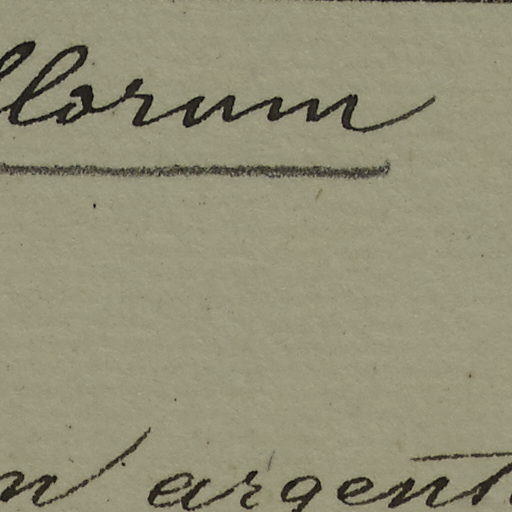 llorum
n argent